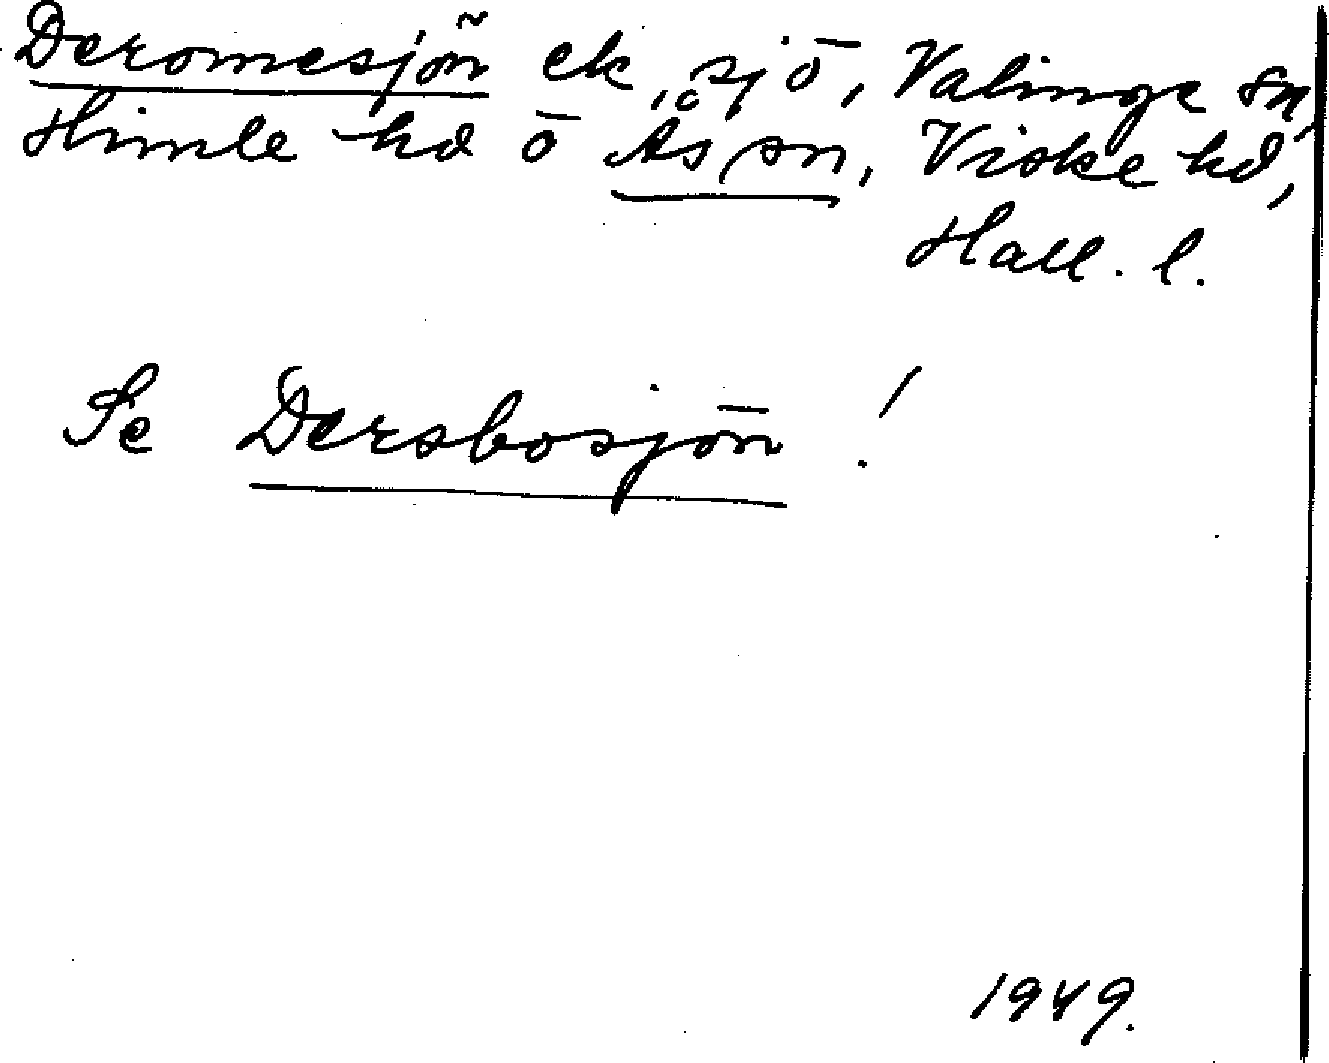 Deromesjön ek, sjö, Valinge sn,
Himle hd o Ås sn, Viske hd,
Hall. l.
Se Dersbosjön !
1949.